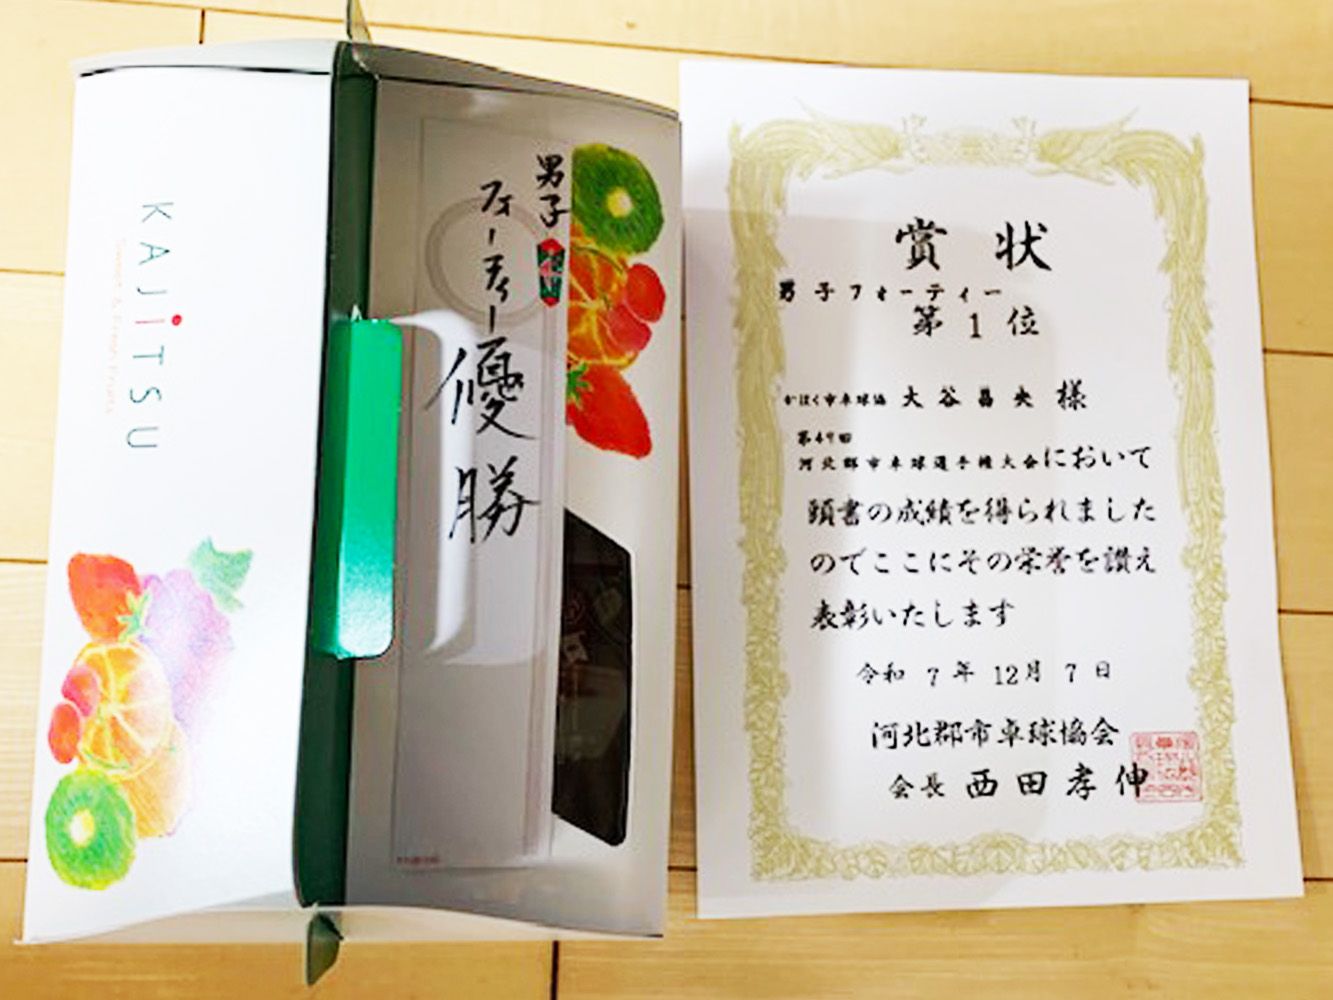 KAJiTSU
男子
フォーティー
優勝
賞状
男子フォーティー
第1位
かほく市卓球協 大谷昌央様
第49回
河北郡市卓球選手権大会において
頭書の成績を得られました
のでここにその栄誉を讃え
表彰いたします
令和7年12月7日
河北郡市卓球協会
会長 西田孝伸